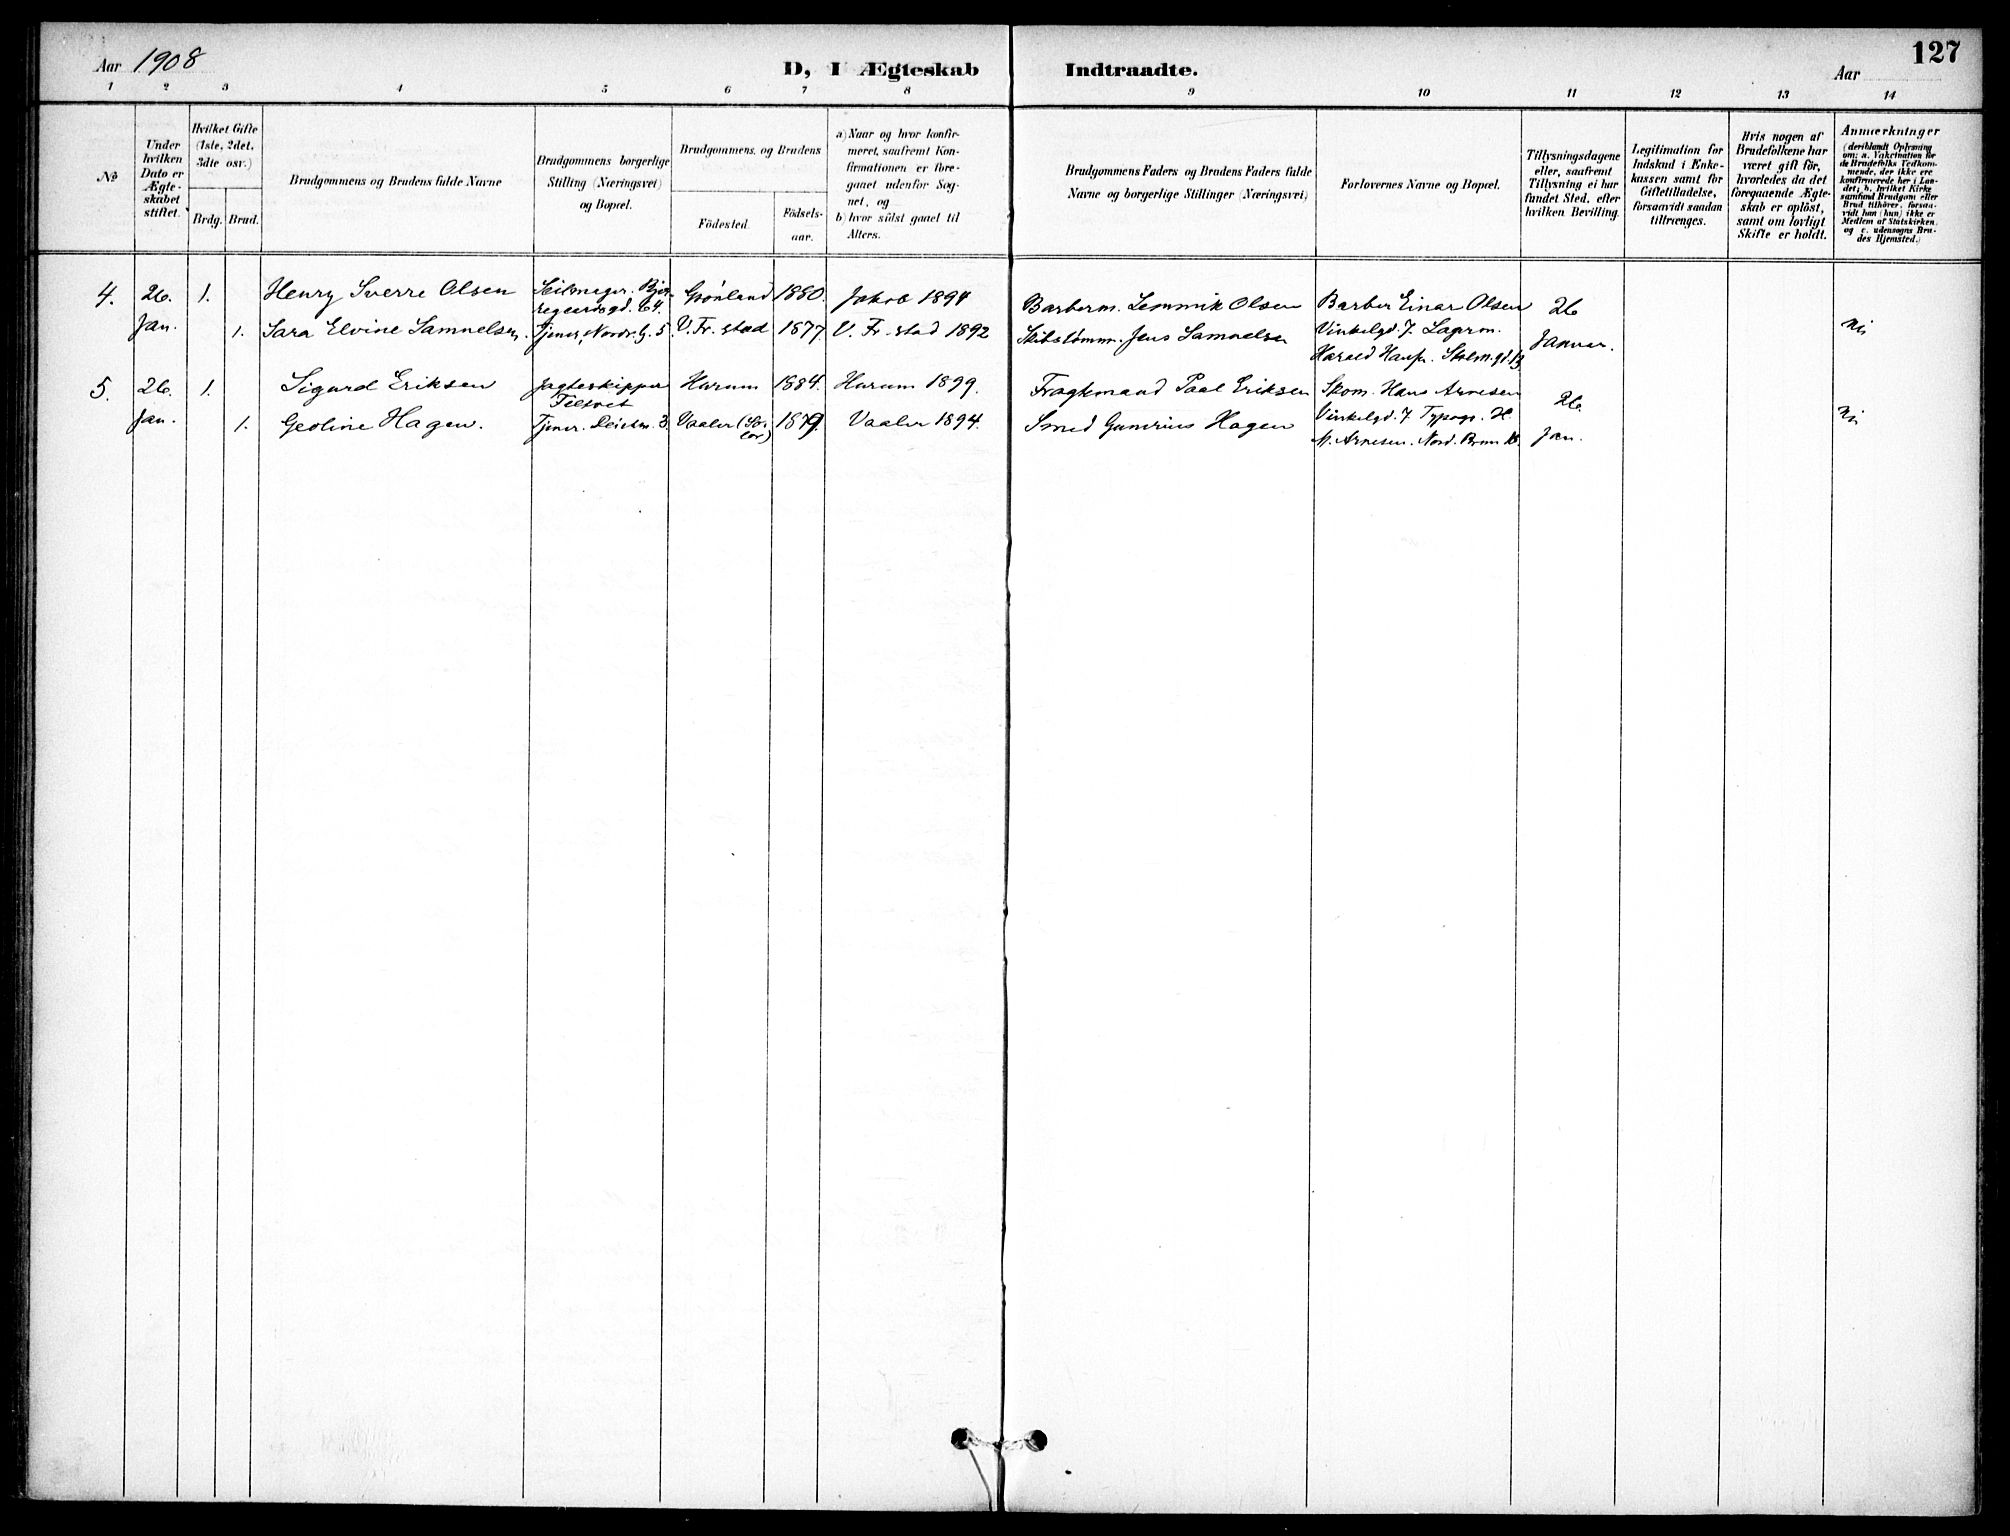 Aar 1908
D, I Ægteskab
Indtraadte.
127
Aar
1 2 3 4 5 6 7 8 9 10 11 12 13 14
№
Under
hvilken
Dato er
Ægte-
skabet
stiftet.
Hvilket Gifte
(1ste, 2det,
3dte osv.)
Brdg. Brud.
Brudgommens og Brudens fulde Navne
Brudgommens borgerlige
Stilling (Næringsvei)
og Bopæl.
Brudgommens og Brudens
Födested.
Födsels-
aar.
a) Naar og hvor konfir-
meret, saafremt Kon-
firmationen er fore-
gaaet udenfor Sog-
net, og
b) hvor sidst gaaet til
Alters.
Brudgommens Faders og Brudens Faders fulde
Navne og borgerlige Stillinger (Næringsvei)
Forlovernes Navne og Bopæl.
Tillysningsdagene
eller, saafremt
Tillysning ei har
fundet Sted, efter
hvilken Bevilling.
Legitimation for
Indskud i Enke-
kassen samt for
Giftetilladelse,
forsaavidt saadan
tiltrænges.
Hvis nogen af
Brudefolkene har
været gift för,
hvorledes da det
foregaaende Ægte-
skab er oplöst,
samt om lovligt
Skifte er holdt.
Anmærkninger
(deriblandt Oplysning
om: a. Vakcination for
de Brudefolks Vedkom-
mende, der ikke ere
konfirmerede her i Lan-
det; b. hvilket Kirke
samfund Brudgom eller
Brud tilhörer, forsaa-
vidt han (hun) ikke er
Medlem af Statskirken
og c. udensogns Bru-
des Hjemsted.)
4. 26. 1. Henry Sverre Olsen Seilmager. 64. Grönland 1880. Jakob 1894 Barberm. Olsen Barber Einar Olsen 26
Jan. 1. Sara Elvine Samuelsen. Tjener, Nordr. G. 5. V. Fr. stad 1877. V. Fr. stad 1892 Skibstömm. Jens Samuelsen Vinkelgd. 7. Lagerm. Januar.
Harald
5. 26. 1. Sigurd Eriksen Jagteskipper Hurum 1884. Hurum 1899. Fragtemand Paal Eriksen Skom. Hans Arnesen 26.
Jan. 1. Geoline Hagen. Tjener. 3. Vaaler 1879. Vaaler 1894. Smed Gunerius Hagen Vinkelgd. 7 Typogr. H. Jan.
M. Arnesen. Nord.